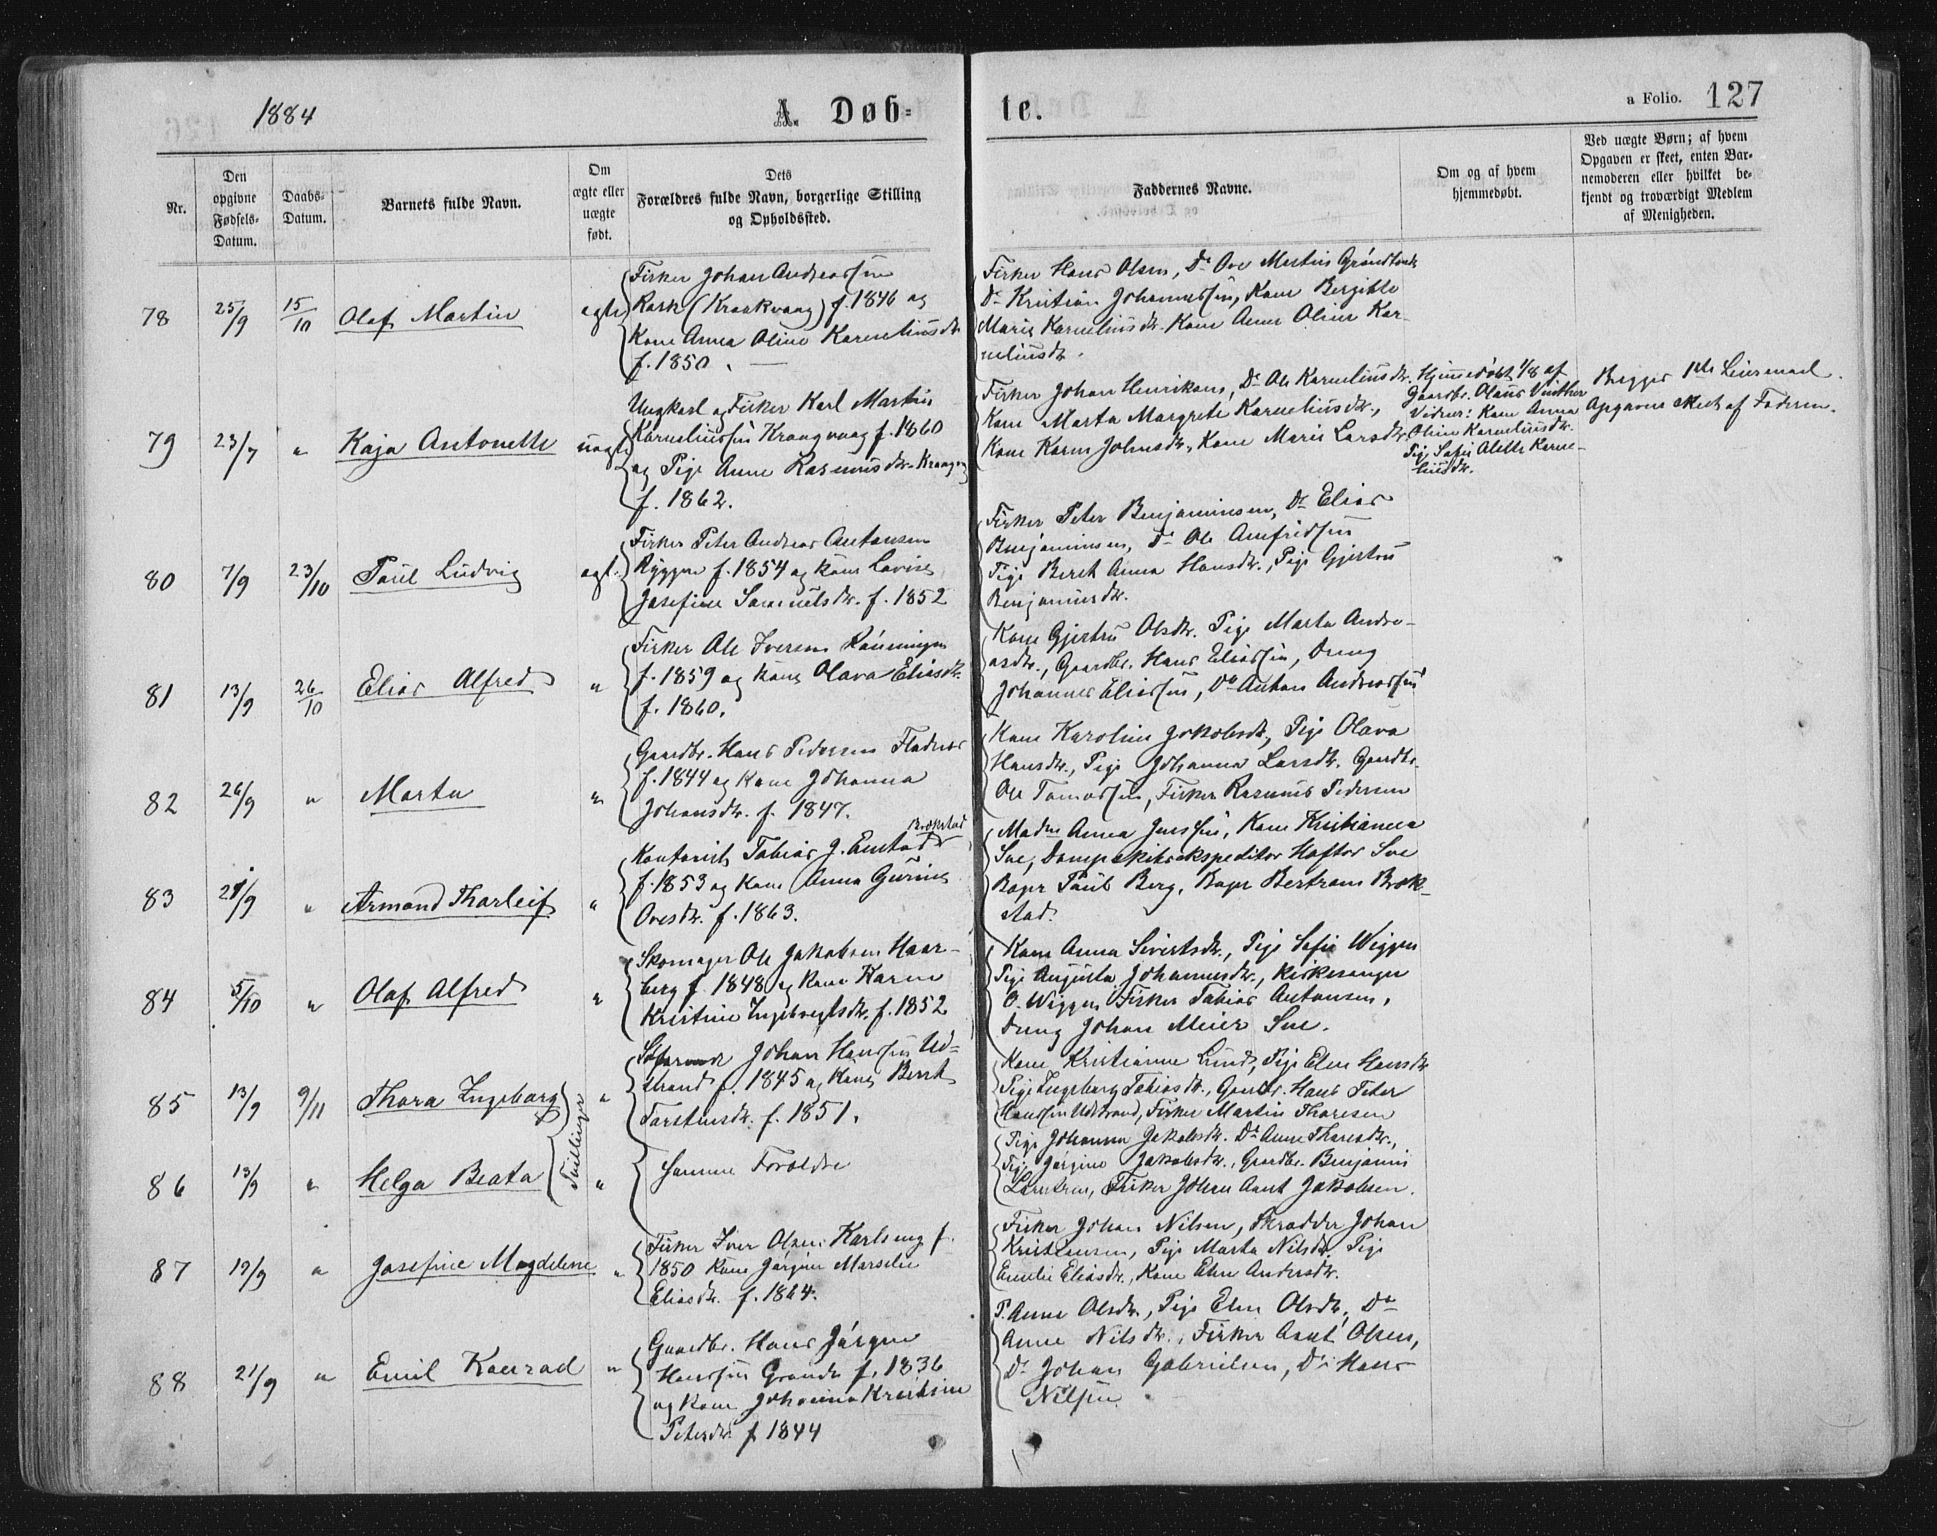 1884
A. Døbte.
a Folio. 127
Nr.
Den opgivne Fødsels-Datum.
Daabs-Datum.
Barnets fulde Navn.
Om ægte eller uægte født.
Dets Forældres fulde Navn, borgerlige Stilling og Opholdssted.
Faddernes Navne.
Om og af hvem hjemmedøbt.
Ved uægte Børn; af hvem Opgaven er skeet, enten Barnemoderen eller hvilket bekjendt og troværdigt Medlem af Menigheden.
78 25/9 15/10 Olaf Martin ægte
Fisker Johan Andreassen
(Kraakvaag) f. 1846 og
Kone Anna Oline Korneliusdtr.
f. 1850.
Fisker Hans Olsen, Do Ove Martin
Do Kristian Johannessen, Kone Bergitte
Marie Korneliusdtr. Kone Anna Oline Kor-
neliusdtr.
79 23/7 " Kaja Antonette uægte
Ungkarl og Fisker Karl Martin
Korneliussen Kraagvaag f. 1860
og Pige Anne Rasmusdtr.
f. 1862.
Fisker Johan Henriksen, Do Ole Korneliusdtr.
Kone Marta Margrete Korneliusdtr.,
Kone Karen Johnsdtr., Kone Marie Larsdtr.
Hjemmedøbt 1/8 af
Gaardbr. Olaus Vinther
Vidner: Kone Anna
Oline Korneliusdtr.
Pige Sofie Alette Korne-
liusdtr.
Begges 1ste Leiermaal.
Opgaven skeet af Faderen.
80 7/9 23/10 Paul Ludvig ægt.
Fisker Peter Andreas Antonsen
Ryggen f. 1854 og Kone Lovise
Josefine Samuelsdtr. f. 1852
Fisker Peter Benjaminsen, Do Elias
Benjaminsen, Do Ole Arnfridsen
Pige Beret Anna Hansdtr., Pige Gjertru
Benjaminsdtr.
81 13/9 26/10 Elias Alfred "
Fisker Ole Iversen Rønningen
f. 1859 og Kone Olava Eliasdtr.
f. 1860.
Kone Gjertru Olsdtr. Pige Marta Andre-
asdtr., Gaardbr. Hans Eliassen, Dreng
Johannes Eliassen, Do Anton Andreassen
82 26/9 " Marta "
Gaardbr. Hans Pedersen Fladnes
f. 1844 og Kone Johanna
Johansdtr. f. 1847.
Kone Karoline Jakobsdtr., Pige Olava
Hansdtr., Pige Johanna Larsdtr. Gaardbr.
Ole Tomassen, Fisker Rasmus Pedersen
83 21/9 " Armand Thorleif "
Kontorist Tobias J. Brekstad
f. 1853 og Kone Anna Gurine
Ovesdtr. f. 1863.
Madm Anna Jenssen, Kone Kristianna
Sve, Dampskibsekspeditør Hoftor Sve
Bager Paul Berg, Bager Bertram Bræk-
stad.
84 5/10 " Olaf Alfred "
Skomager Ole Jakobsen Haar-
berg f. 1848 og Kone Karen
Kristine Ingebregtsdtr. f. 1852
Kone Anna Sivertsdtr., Pige Sofie Wiggen
Pige Augusta Johannesdtr., Kirkesanger
O. Wiggen, Fisker Tobias Antonsen,
Dreng Johan Meier Sve.
85 13/9 9/11 Thora Ingeborg "
Tvillinger
Johan Hanssen Ud-
strand f. 1845 og Kone Beret
Torstensdtr. f. 1851.
Kone Kristianne Lund, Pige Elen Hansdtr
Pige Ingeborg Tobiasdtr., Gaardbr. Hans Peter
Hanssen Udstrand, Fisker Martin Thoresen
86 13/9 " Helga Beata "
Samme Forældre
Pige Johanna Jakobsdtr. Do Anne Thoresdtr.,
Pige Jørgine Jakobsdtr., Gaardbr. Benjamin
Lorentsen, Fisker Johan Arnt Jakobsen.
87 19/9 " Josefine Magdelene "
Fisker Iver Olsen Karlseng f.
1850 Kone Jørgine Marselie
Eliasdtr. f. 1864.
Fisker Johan Nilsen, Skrædder Johan
Kristiansen, Pige Marta Nilsdtr. Pige
Emelie Eliasdtr., Kone Elen Andersdtr.
88 21/9 " Emil Konrad "
Gaardbr. Hans Jørgen
Hanssen Grande f. 1836
og Kone Johanna Kristine
Petersdtr. f. 1844
P. Anne Olsdtr., Pige Elen Olsdtr., Do
Anne Nilsdtr., Fisker Arnt Olsen,
Do Johan Gabrielsen, Do Hans
Nilsen